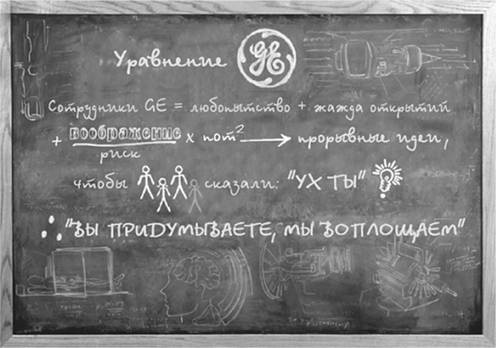 Уравнение GE
Сотрудники GE = любопытство + жажда открытий
+ воображение
риск
x пот² → прорывные идеи,
чтобы сказали: "УХ ТЫ"
∴ "ВЫ ПРИДУМЫВАЕТЕ, МЫ ВОПЛОЩАЕМ"